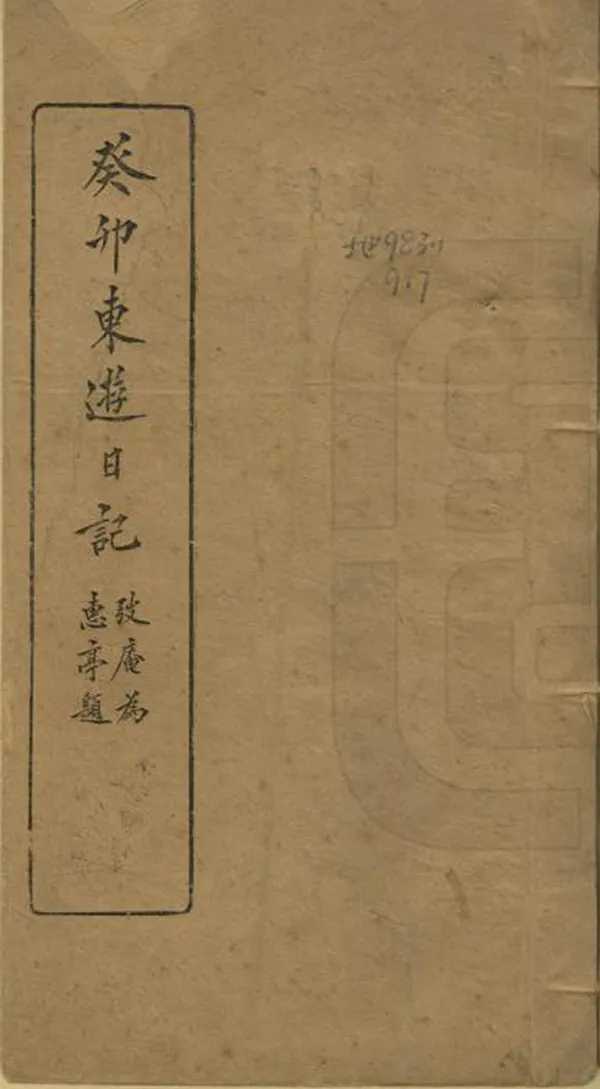 癸卯東遊日記
弢庵為
惠亭題
地983.1
9.7